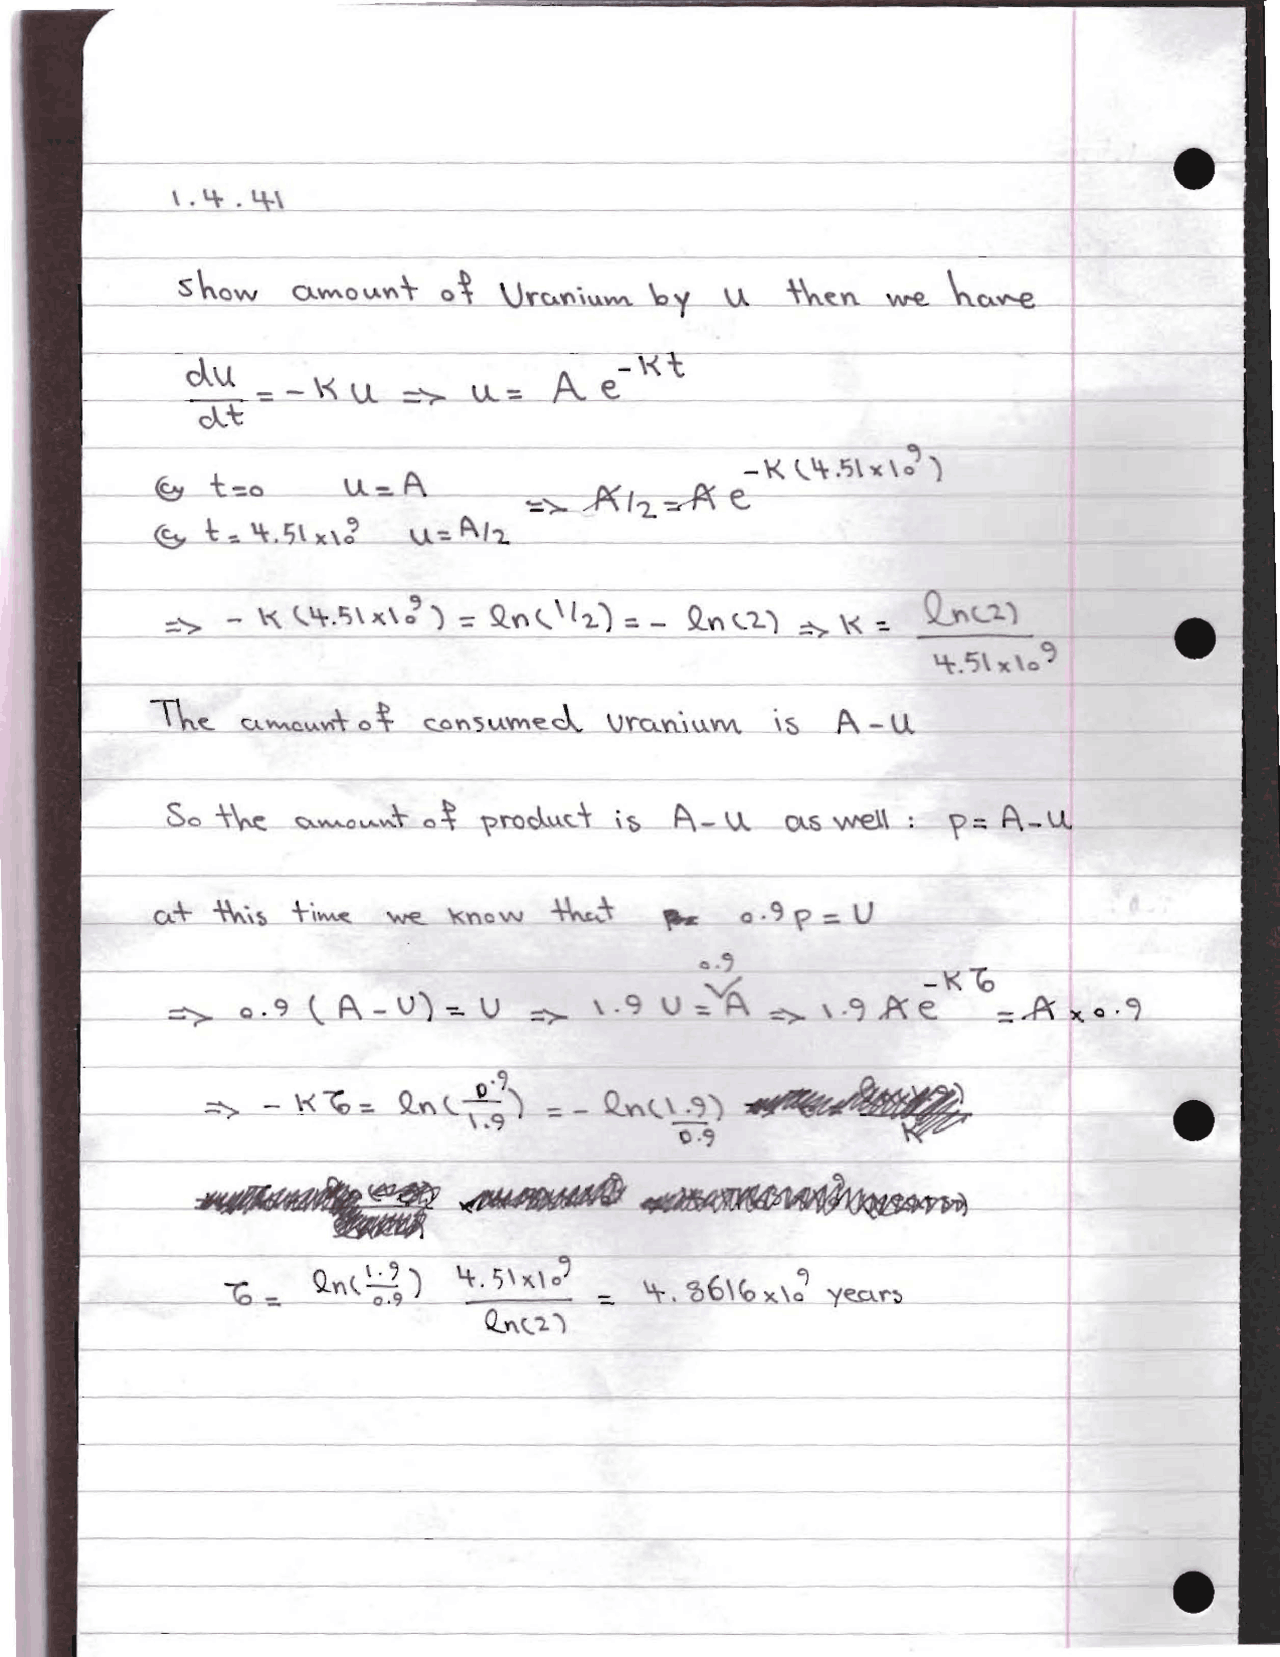 1.4.41
show amount of Uranium by u then we have
du/dt = -Ku => u = A e^{-Kt}
@ t=0   u=A   => A/2 = A e^{-K(4.51×10^9)}
@ t=4.51×10^9   u=A/2
=> -K(4.51×10^9) = ln(1/2) = - ln(2) => K = ln(2)/4.51×10^9
The amount of consumed uranium is A-u
So the amount of product is A-u as well : p=A-u
at this time we know that 0.9p=U
=> 0.9(A-U)=U => 1.9U = 0.9 A => 1.9 A e^{-Kτ} = A×0.9
=> -Kτ = ln(0.9/1.9) = - ln(1.9/0.9)
τ = ln(1.9/0.9) 4.51×10^9/ln(2) = 4.8616×10^9 years